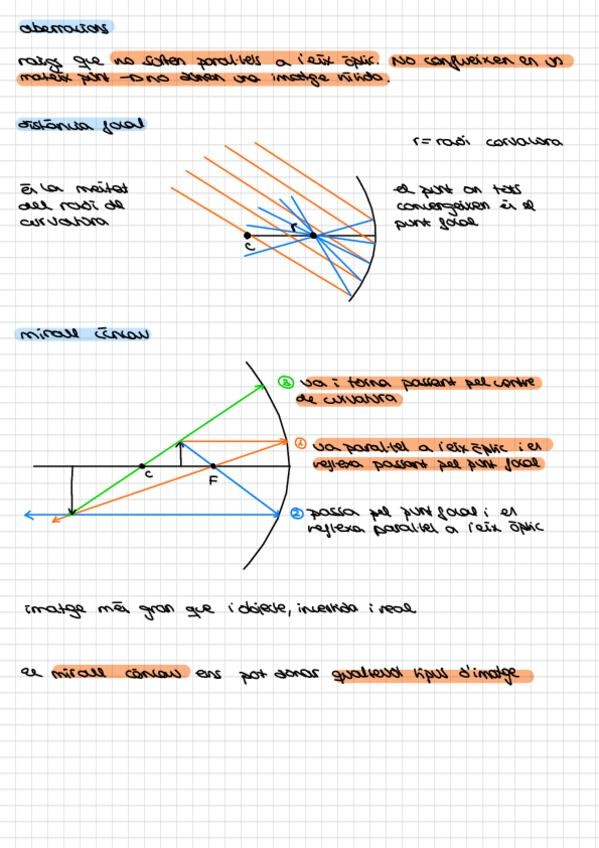 aberracions
raigs que no surten paral·lels a l'eix òptic. No conflueixen en un
mateix punt → no donen una imatge nítida.
distància focal
r = radi curvatura
És la meitat
del radi de
curvatura
el punt on tots
convergeixen és el
punt focal
r
C
mirall còncau
③ va i torna passant pel centre
de curvatura
① va paral·lel a l'eix òptic i es
reflexa passant pel punt focal
C
F
② passa pel punt focal i es
reflexa paral·lel a l'eix òptic
imatge més gran que l'objecte, invertida i real
el mirall còncau ens pot donar qualsevol tipus d'imatge